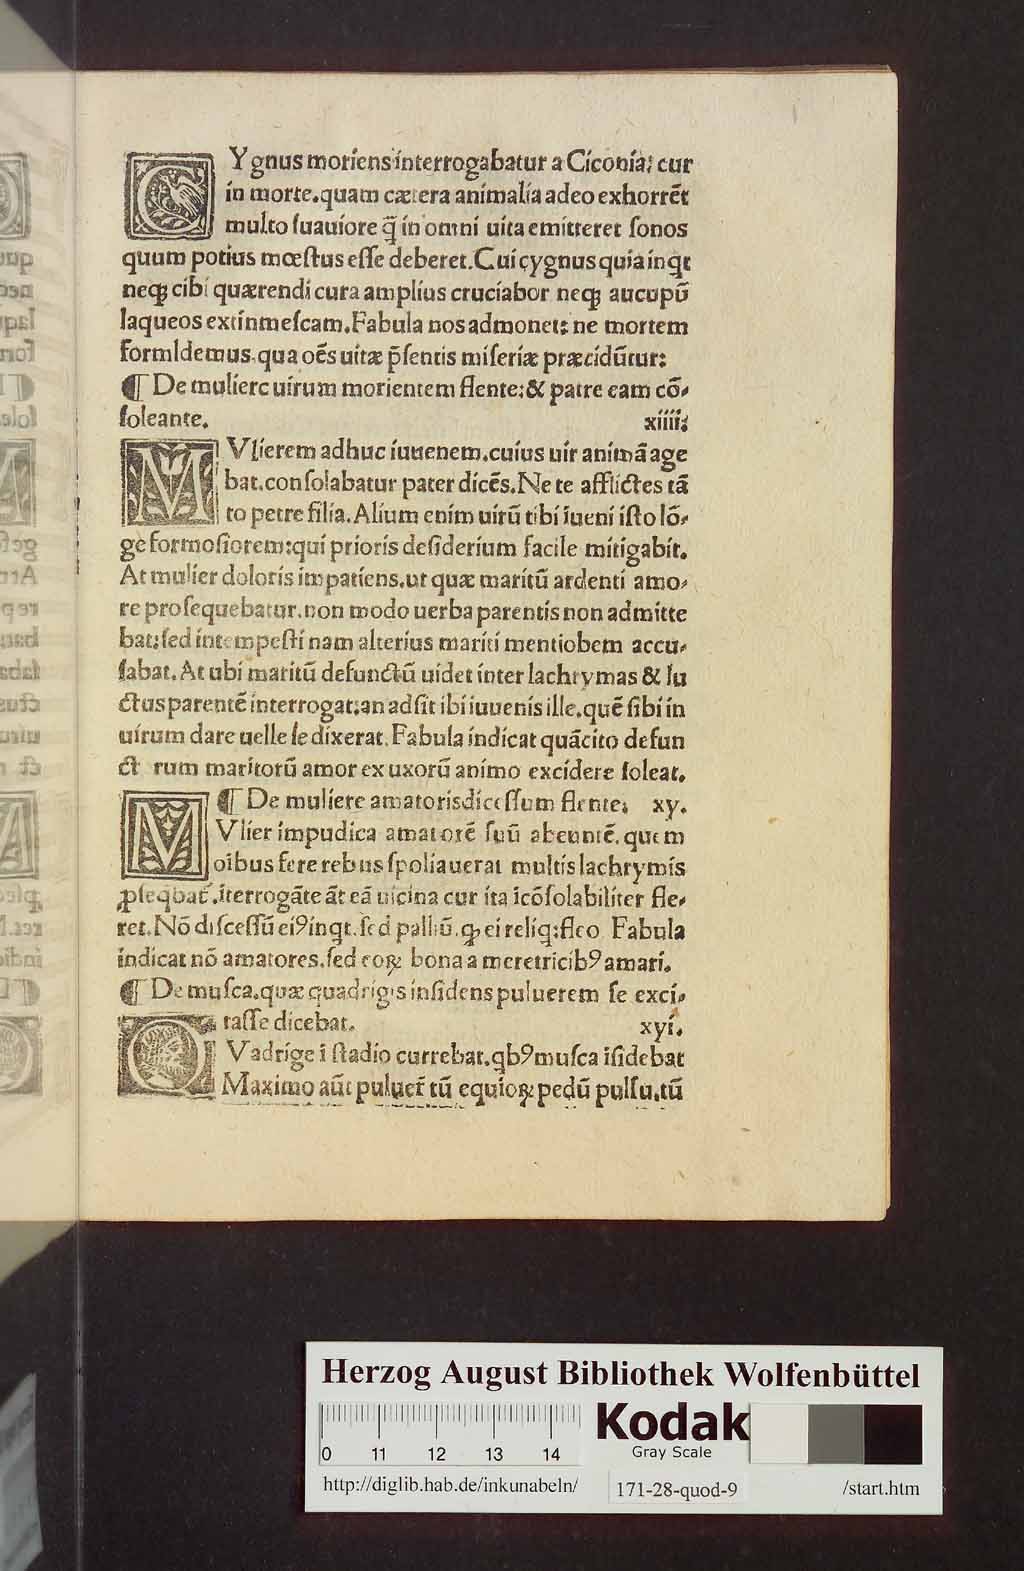 CYgnus moriens interrogabatur a Ciconia: cur
in morte.quam cætera animalia adeo exhorrēt
multo ſuauiore q̄ in omni uita emitteret ſonos
quum potius mœſtus eſſe deberet.Cui cygnus quia inqt
neqꝫ cibi quærendi cura amplius cruciabor neqꝫ aucupū
laqueos extinmeſcam.Fabula nos admonet: ne mortem
formldemus.qua oēs uitæ p̄ſentis miſeriæ præcidūtur:
¶ De mulierc uirum morientem flente:& patre eam cō⸗
ſoleante. xiiii:
MVlierem adhuc iuuenem.cuius uir animā age
bat.conſolabatur pater dicēs.Ne te afflictes tā
to petre filia.Alium enim uirū tibi iueni iſto lō⸗
ge formoſiorem:qui prioris deſiderium facile mitigabit.
At mulier doloris impatiens.ut quæ maritū ardenti amo⸗
re proſequebatur.non modo uerba parentis non admitte
bat:ſed intempeſti nam alterius mariti mentiobem accu⸗
ſabat.At ubi maritū defunctū uidet inter lachrymas & lu
ctus parentē interrogat:an adſit ibi iuuenis ille.quē ſibi in
uirum dare uelle ſe dixerat.Fabula indicat quācito defun
ct rum maritorū amor ex uxorū animo excidere ſoleat.
¶ De muliere amatoris diceſſum flente: xy.
MVlier impudica amatorē ſuū abeuntē.quem
oibus fere rebus ſpoliauerat multis lachrymis
ꝓſeqbat̄.iterrogāte āt eā uicina cur ita icōſolabiliter fle⸗
ret.Nō diſceſſū eiꝰ inqt.ſed palliū.qꝫ ei reliq:fleo Fabula
indicat nō amatores.ſed eoꝝ bona a meretricibꝰ amari.
¶ De muſca.quæ quadrigis inſidens puluerem ſe exci⸗
taſſe dicebat. xyi.
QVadrige i ſtadio currebat.qbꝰ muſca iſidebat
Maximo aūt puluer̄ tū equioꝝ pedū pulſu.tū
Herzog August Bibliothek Wolfenbüttel
0 11 12 13 14
Kodak
Gray Scale
http://diglib.hab.de/inkunabeln/ 171-28-quod-9 /start.htm